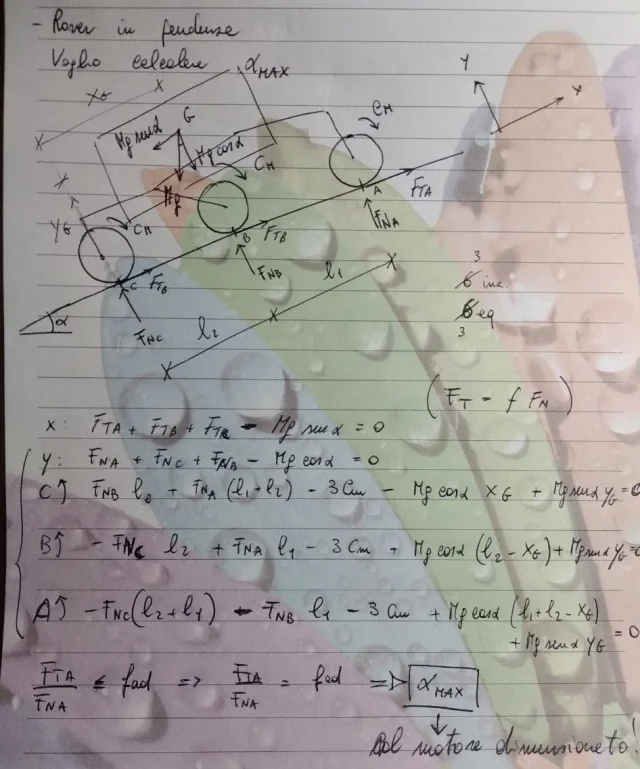 - Rover in pendenza
Voglio calcolare α MAX
XG
G
Mg senα
Mg cosα
Mg
CM
CM
CM
YG
A
FTA
FNA
B
FTB
FNB
C
FTB
FNC
α
l1
l2
Y
X
3
6 inc.
6 eq
3
(FT = f FN)
x: FTA + FTB + FTC - Mg senα = 0
y: FNA + FNC + FNB - Mg cosα = 0
C↑ FNB l2 + FNA (l1+l2) - 3Cm - Mg cosα XG + Mg senα YG = 0
B↑ - FNC l2 + FNA l1 - 3Cm + Mg cosα (l2-XG) + Mg senα YG = 0
A↑ -FNC(l2+l1) - FNB l1 - 3Cm + Mg cosα (l1+l2-XG)
+ Mg senα YG = 0
FTA/FNA ≤ fad => FTA/FNA = fad => αMAX
↓
dal motore dimensionato!